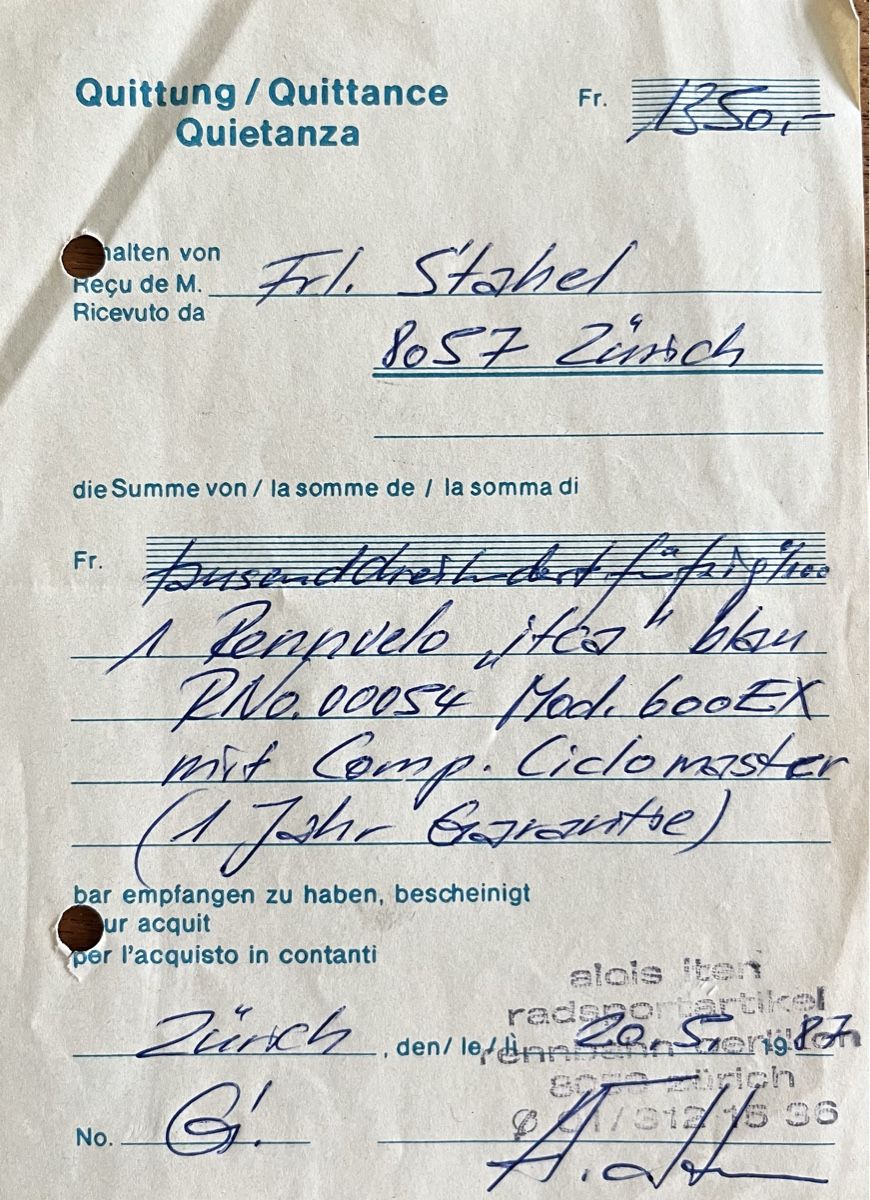 Quittung / Quittance
Quietanza
Fr. 1350,-
halten von
Reçu de M. Frl. Stahel
Ricevuto da
8057 Zürich
die Summe von / la somme de / la somma di
Fr. tausenddreihundertfünfzig %00
1 Rennvelo „itea“ blau
RNo. 00054 Mod. 600EX
mit Comp. Ciclomaster
(1 Jahr Garantie)
bar empfangen zu haben, bescheinigt
ur acquit
per l'acquisto in contanti
alois iten
radsportartikel
Zürich, den / le / li 20.5. 1987
rennbahn oerlikon
8050 zürich
01/312 15 36
No. G!